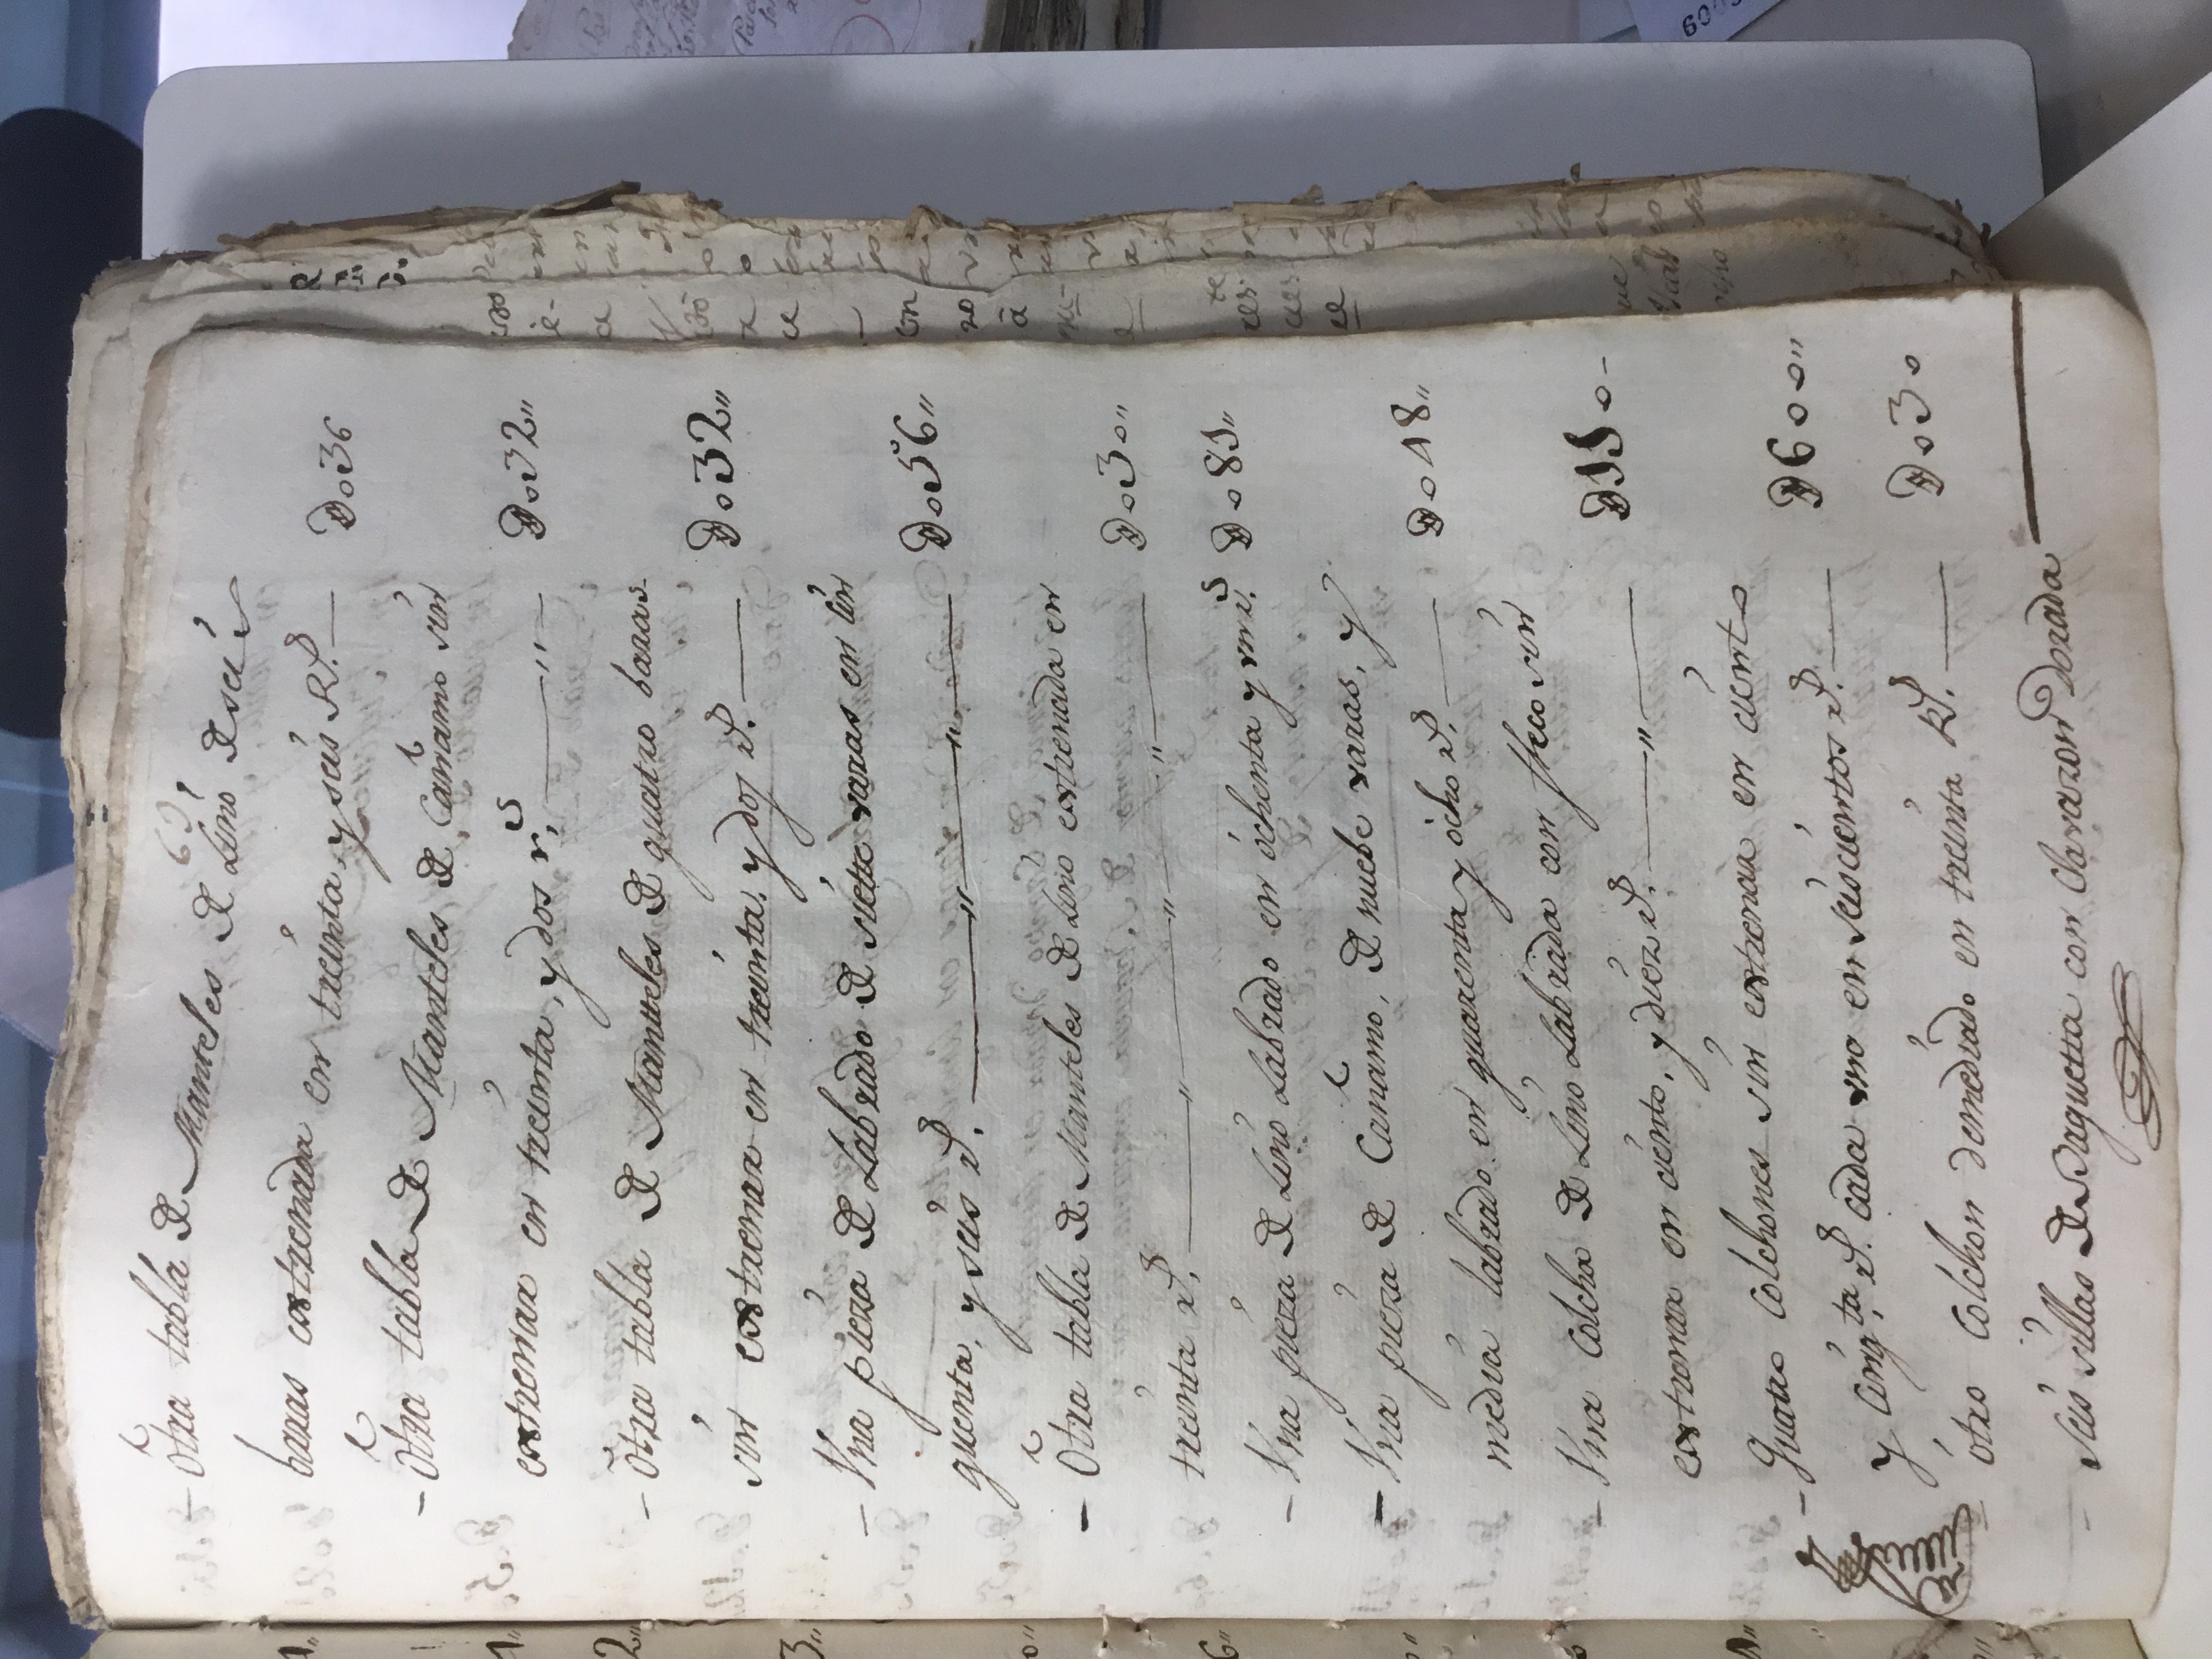 - Otra tabla de Manteles de Lino de seis
baras estrenada en treinta, y seis Rs. — D036
- Otra tabla de Manteles de Cañamo sin
estrenar en treinta, y dos rs. — " D032"
- Otra tabla de Mantteles de quatro baras
sin estrenar en treinta, y dos rs. — D032"
- Vna pieza de Labrado de siette varas en cin
quenta, y seis rs. — " — " — D056"
- Otra tabla de Manteles de Lino estrenada en
treinta rs. — " — " — " — D030"
- Vna pieza de Lino Labrado en ochenta y un rs. D081"
- Vna pieza de Cañamo, de nuebe varas, y
media labrado en quarenta y ocho rs. — D048"
- Vna Colcha de Lino Labrada con fleco sin
estrenar en ciento, y diez rs. — " — D110-
- Quatro Colchones sin estrenar en ciento
y Cinqta. rs. cada vno en seiscientos rs. — D600"
- otro Colchon demediado en treinta Rs. — D030
- Seis sillas de Baquetta con Clavazon Dorada